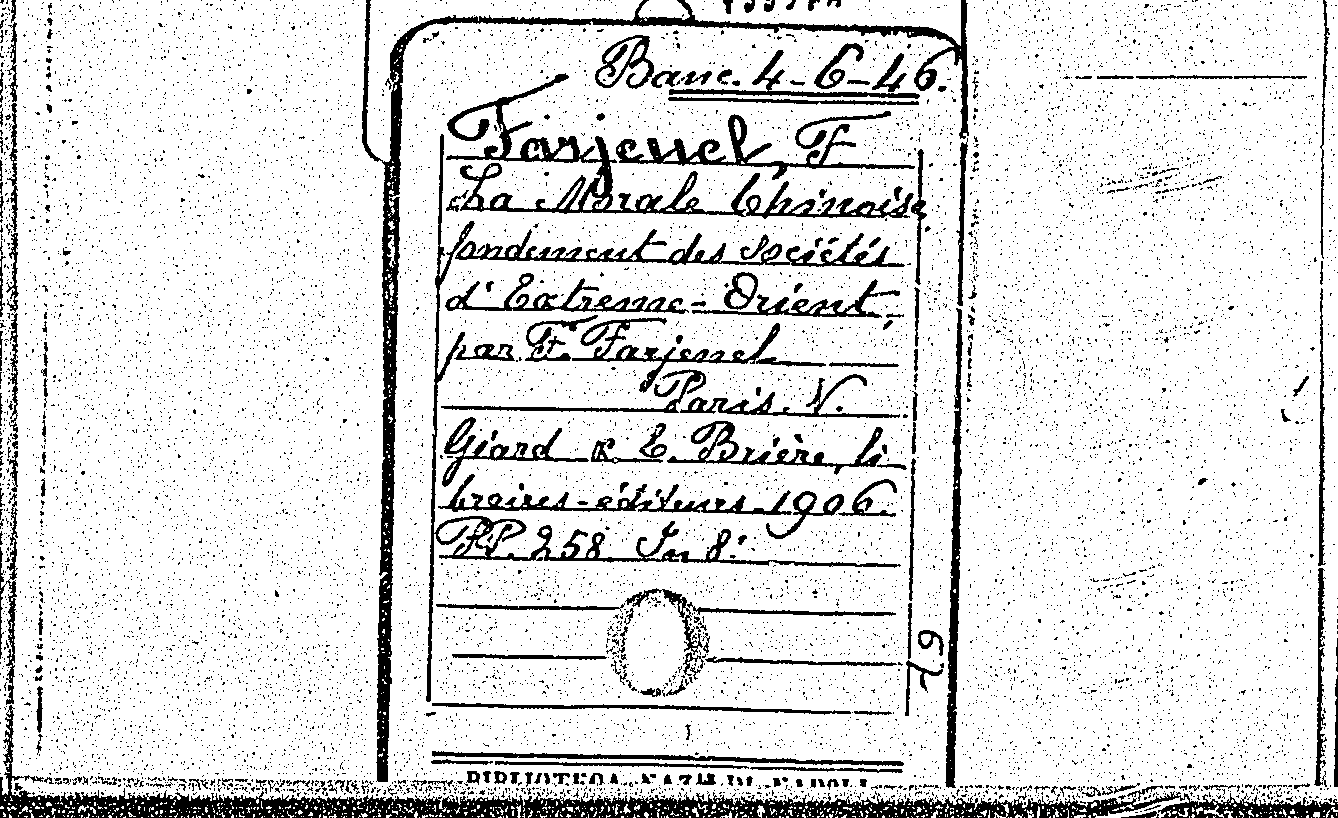 Banc. 4-6-46.
Farjenel, F
La Morale Chinoise
fondement des Sociétés
d'Extreme-Orient,
par F. Farjenel
Paris. V.
Giard & E. Brière, li
braires-éditeurs-1906.
PP. 258 In 8:
19
BIBLIOTECA NAZ. DI NAPOLI